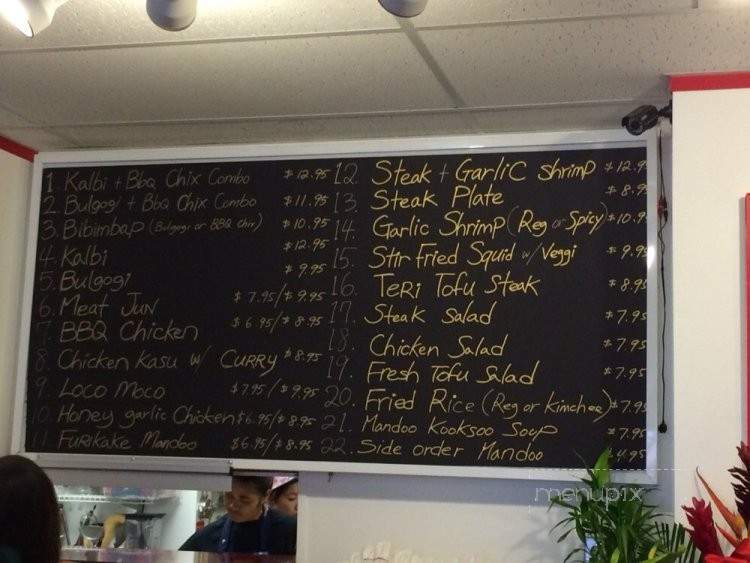 1. Kalbi + Bbq Chix Combo $12.95
2. Bulgogi + Bbq Chix Combo $11.95
3. Bibimbap (Bulgogi or BBQ Chix) $10.95
4. Kalbi $12.95
5. Bulgogi $9.95
6. Meat Jun $7.95/$9.95
7. BBQ Chicken $6.95/$8.95
8. Chicken Kasu w/ CURRY $8.95
9. Loco Moco $7.95/$9.95
10. Honey garlic Chicken $6.95/$8.95
11. FURIKAKE Mandoo $6.95/$8.95
12. Steak + Garlic Shrimp $12.95
13. Steak Plate $8.95
14. Garlic Shrimp (Reg or Spicy) $10.9
15. Stir Fried Squid w/ Veggi $9.95
16. TeRi Tofu Steak $8.95
17. Steak Salad $7.95
18. Chicken Salad $7.95
19. Fresh Tofu Salad $7.95
20. Fried Rice (Reg or Kimchee) $7.95
21. Mandoo Kooksoo Soup $7.95
22. Side order Mandoo $4.95
menupix